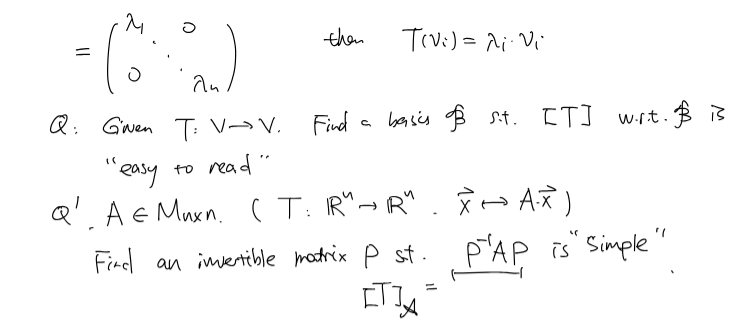 = ( λ₁ ⋱ 0 0 ⋱ λₙ ) then T(vᵢ) = λᵢ · vᵢ
Q: Given T: V → V. Find a basis 𝔅 s.t. [T] w.r.t. 𝔅 is
"easy to read"
Q'. A ∈ Mn×n. ( T: ℝⁿ → ℝⁿ . x⃗ ↦ A·x⃗ )
Find an invertible matrix P st. P⁻¹AP is "simple".
[T] =